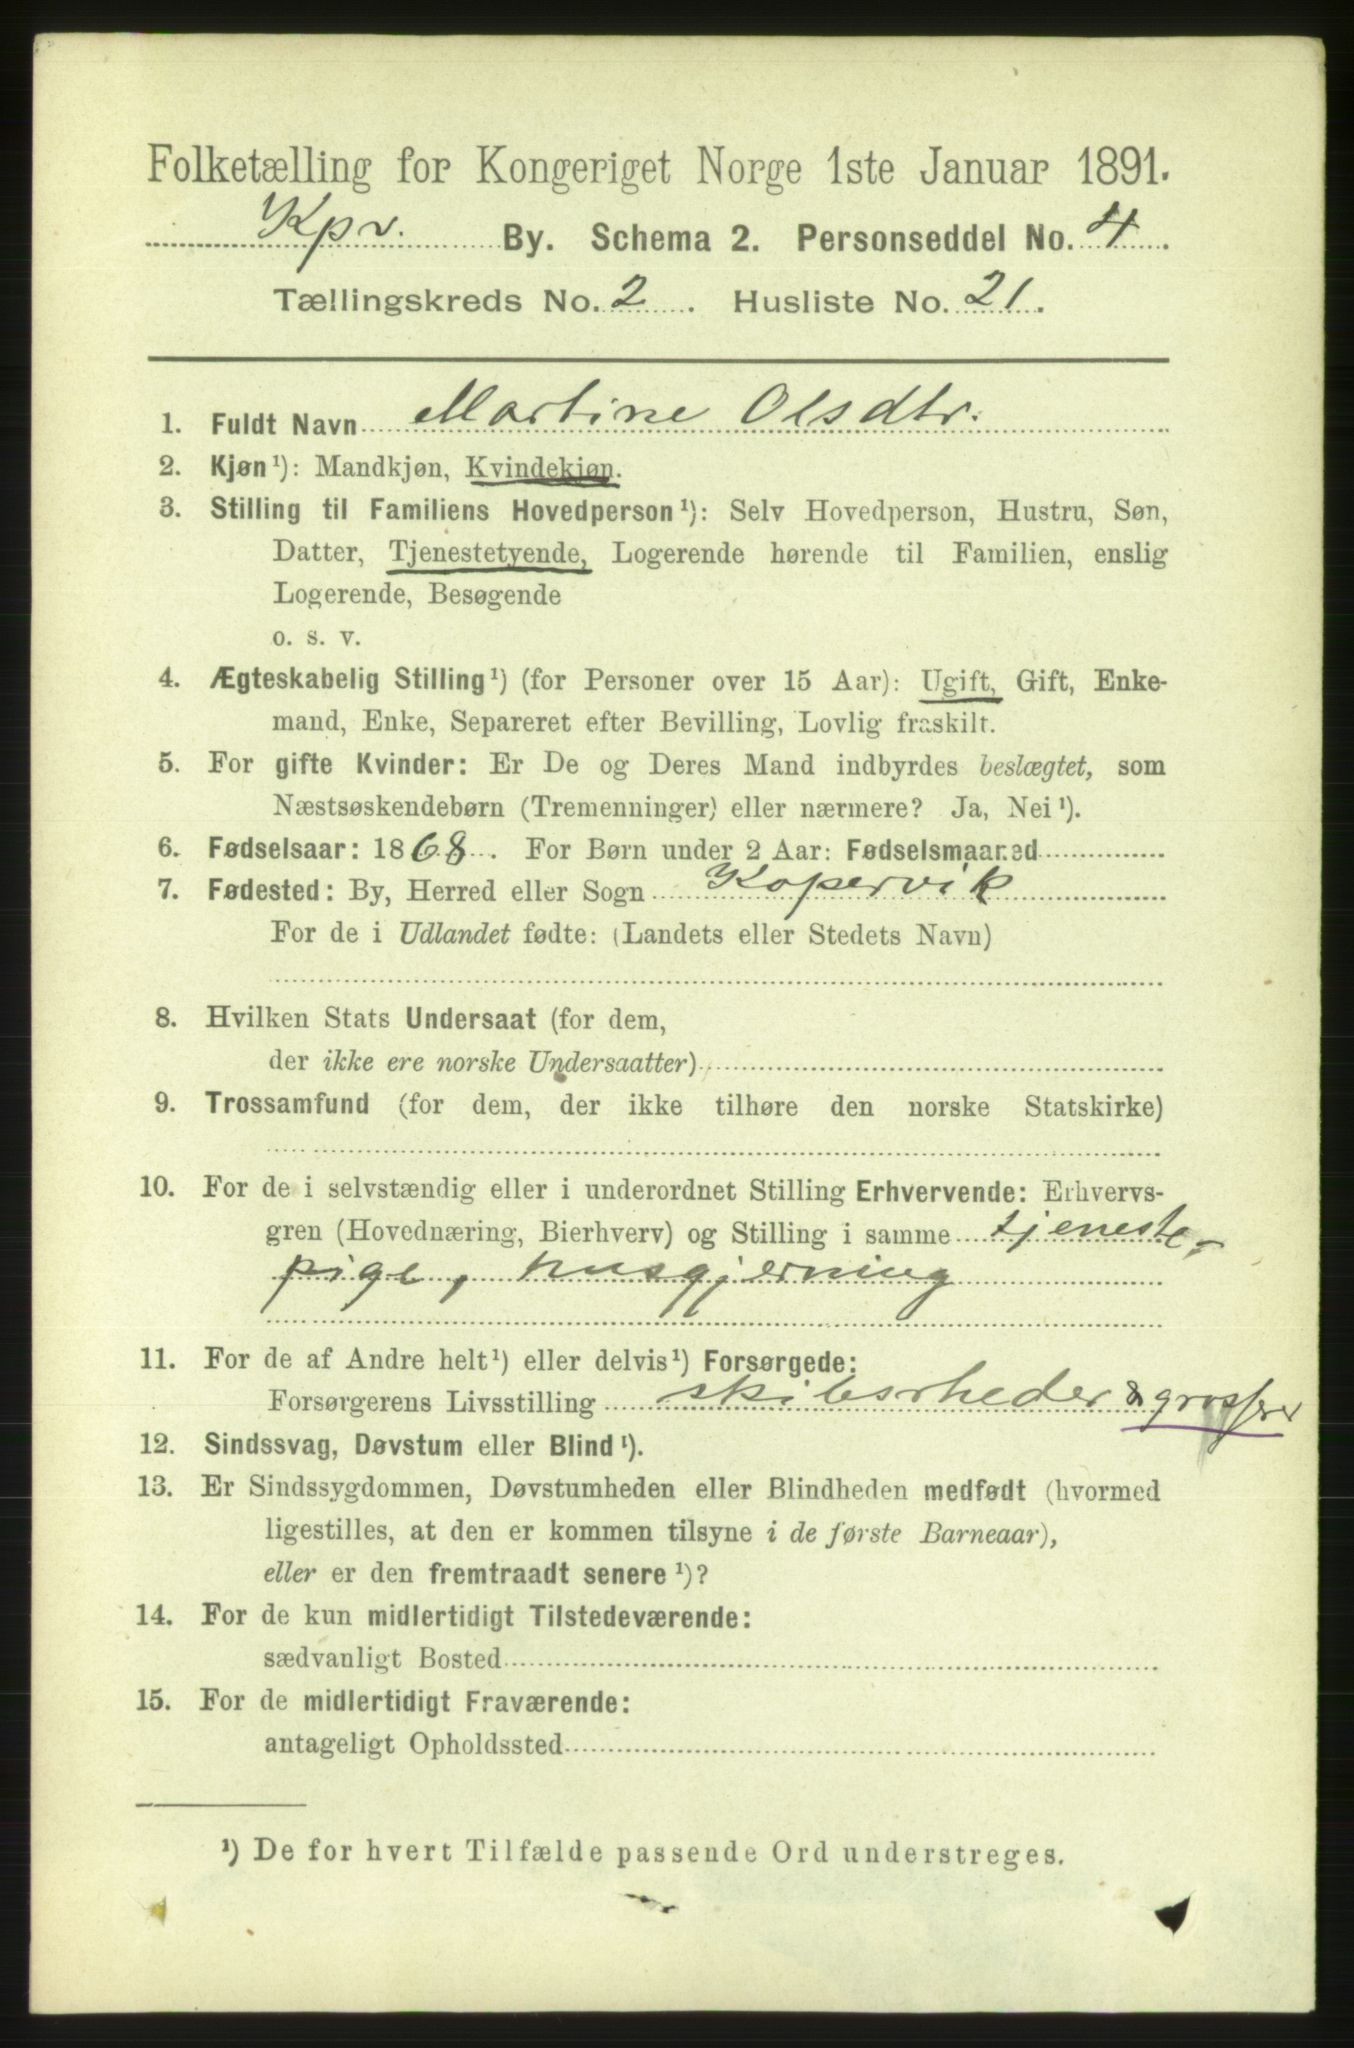 Folketælling for Kongeriget Norge 1ste Januar 1891.
Kpv. By. Schema 2. Personseddel No. 4.
Tællingskreds No. 2. Husliste No. 21.
1. Fuldt Navn Martine Olsdtr.
2. Kjøn ¹): Mandkjøn, Kvindekjøn.
3. Stilling til Familiens Hovedperson ¹): Selv Hovedperson, Hustru, Søn,
Datter, Tjenestetyende, Logerende hørende til Familien, enslig
Logerende, Besøgende
o. s. v.
4. Ægteskabelig Stilling ¹) (for Personer over 15 Aar): Ugift, Gift, Enke-
mand, Enke, Separeret efter Bevilling, Lovlig fraskilt.
5. For gifte Kvinder: Er De og Deres Mand indbyrdes beslægtet, som
Næstsøskendebørn (Tremenninger) eller nærmere? Ja, Nei ¹).
6. Fødselsaar: 1868. For Børn under 2 Aar: Fødselsmaaned
7. Fødested: By, Herred eller Sogn Kopervik
For de i Udlandet fødte: (Landets eller Stedets Navn)
8. Hvilken Stats Undersaat (for dem,
der ikke ere norske Undersaatter)
9. Trossamfund (for dem, der ikke tilhøre den norske Statskirke)
10. For de i selvstændig eller i underordnet Stilling Erhvervende: Erhvervs-
gren (Hovednæring, Bierhverv) og Stilling i samme tjeneste-
pige, husgjerning
11. For de af Andre helt ¹) eller delvis ¹) Forsørgede:
Forsørgerens Livsstilling skibsrheder & grosserer
12. Sindssvag, Døvstum eller Blind ¹).
13. Er Sindssygdommen, Døvstumheden eller Blindheden medfødt (hvormed
ligestilles, at den er kommen tilsyne i de første Barneaar),
eller er den fremtraadt senere ¹)?
14. For de kun midlertidigt Tilstedeværende:
sædvanligt Bosted
15. For de midlertidigt Fraværende:
antageligt Opholdssted
¹) De for hvert Tilfælde passende Ord understreges.